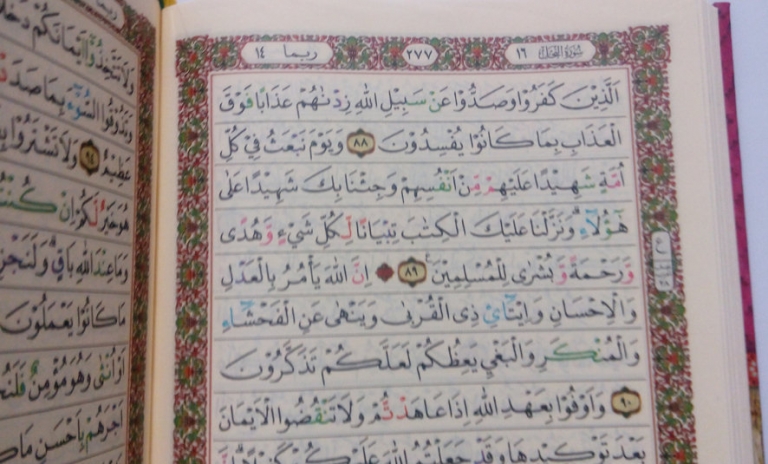 ربما ١٤
٢٧٧
سورة النحل ١٦
اَلَّذِيْنَ كَفَرُوْا وَصَدُّوْا عَنْ سَبِيْلِ اللّٰهِ زِدْنٰهُمْ عَذَابًا فَوْقَ
الْعَذَابِ بِمَا كَانُوْا يُفْسِدُوْنَ ٨٨ وَيَوْمَ نَبْعَثُ فِيْ كُلِّ
اُمَّةٍ شَهِيْدًا عَلَيْهِمْ مِّنْ اَنْفُسِهِمْ وَجِئْنَا بِكَ شَهِيْدًا عَلٰى
هٰٓؤُلَآءِۗ وَنَزَّلْنَا عَلَيْكَ الْكِتٰبَ تِبْيَانًا لِّكُلِّ شَيْءٍ وَّهُدًى
وَّرَحْمَةً وَّبُشْرٰى لِلْمُسْلِمِيْنَ ٨٩ اِنَّ اللّٰهَ يَأْمُرُ بِالْعَدْلِ
وَالْاِحْسَانِ وَاِيْتَاۤئِ ذِى الْقُرْبٰى وَيَنْهٰى عَنِ الْفَحْشَاۤءِ
وَالْمُنْكَرِ وَالْبَغْيِ يَعِظُكُمْ لَعَلَّكُمْ تَذَكَّرُوْنَ
٩٠ وَاَوْفُوْا بِعَهْدِ اللّٰهِ اِذَا عَاهَدْتُّمْ وَلَا تَنْقُضُوا الْاَيْمَانَ
بَعْدَ تَوْكِيْدِهَا وَقَدْ جَعَلْتُمُ اللّٰهَ عَلَيْكُمْ كَفِيْلًا
وَلَا تَتَّخِذُوْٓا اَيْمَانَكُمْ
وَتَذُوْقُوا السُّوْۤءَ بِمَا صَدَ
عَظِيْمٌ ٩٤ وَلَا تَشْتَرُوْا
هُوَ خَيْرٌ لَّكُمْ اِنْ كُنْتُ
وَمَا عِنْدَ اللّٰهِ بَاقٍۗ وَلَنَجْزِ
مَا كَانُوْا يَعْمَلُوْنَ
اَوْ اُنْثٰى وَهُوَ مُؤْمِنٌ فَلَنُحْ
اَجْرَهُمْ بِاَحْسَنِ مَا كَا